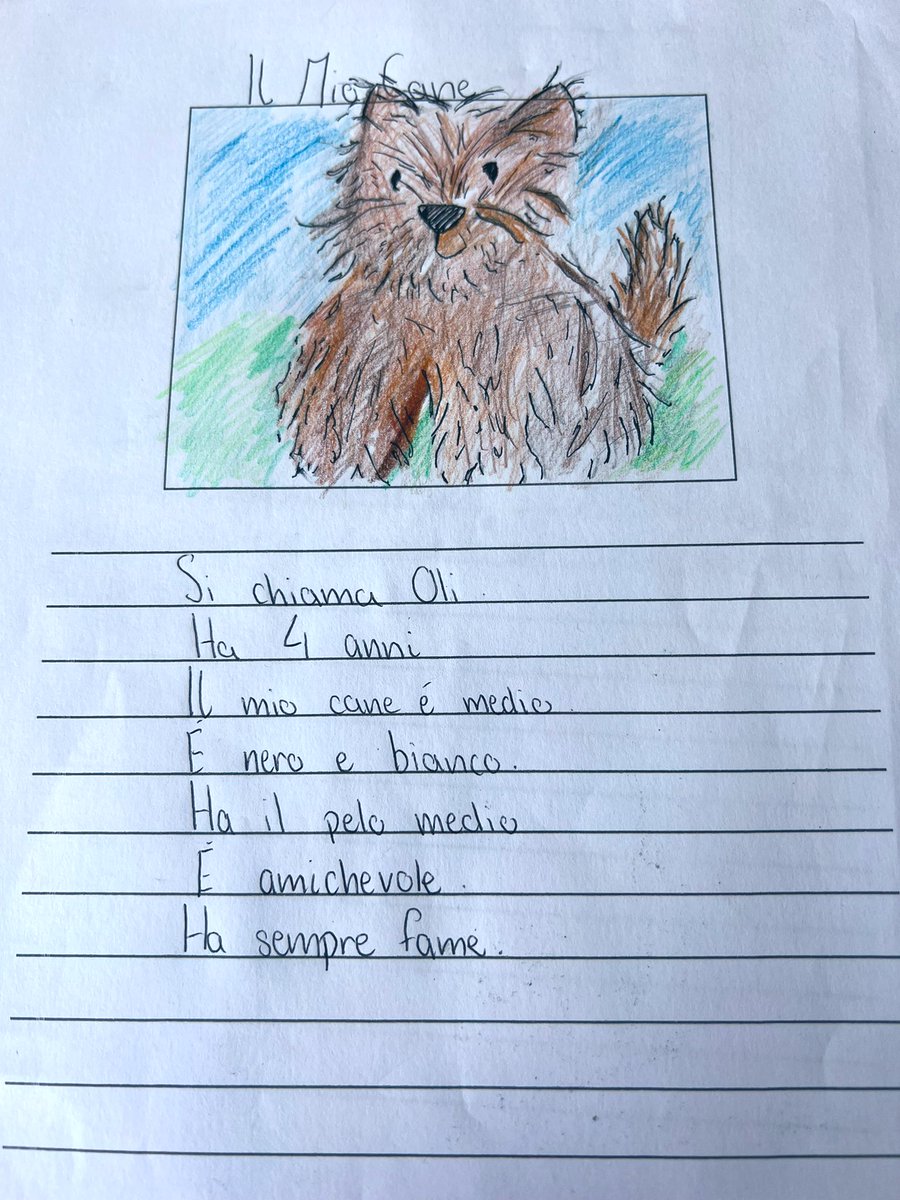 Il Mio Cane
Si chiama Oli.
Ha 4 anni
Il mio cane é medio.
É nero e bianco.
Ha il pelo medio
É amichevole.
Ha sempre fame.